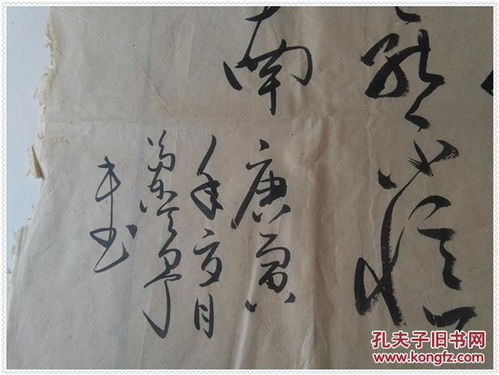 能不憶
南
庚寅
年夏月
书
孔夫子旧书网
www.kongfz.com